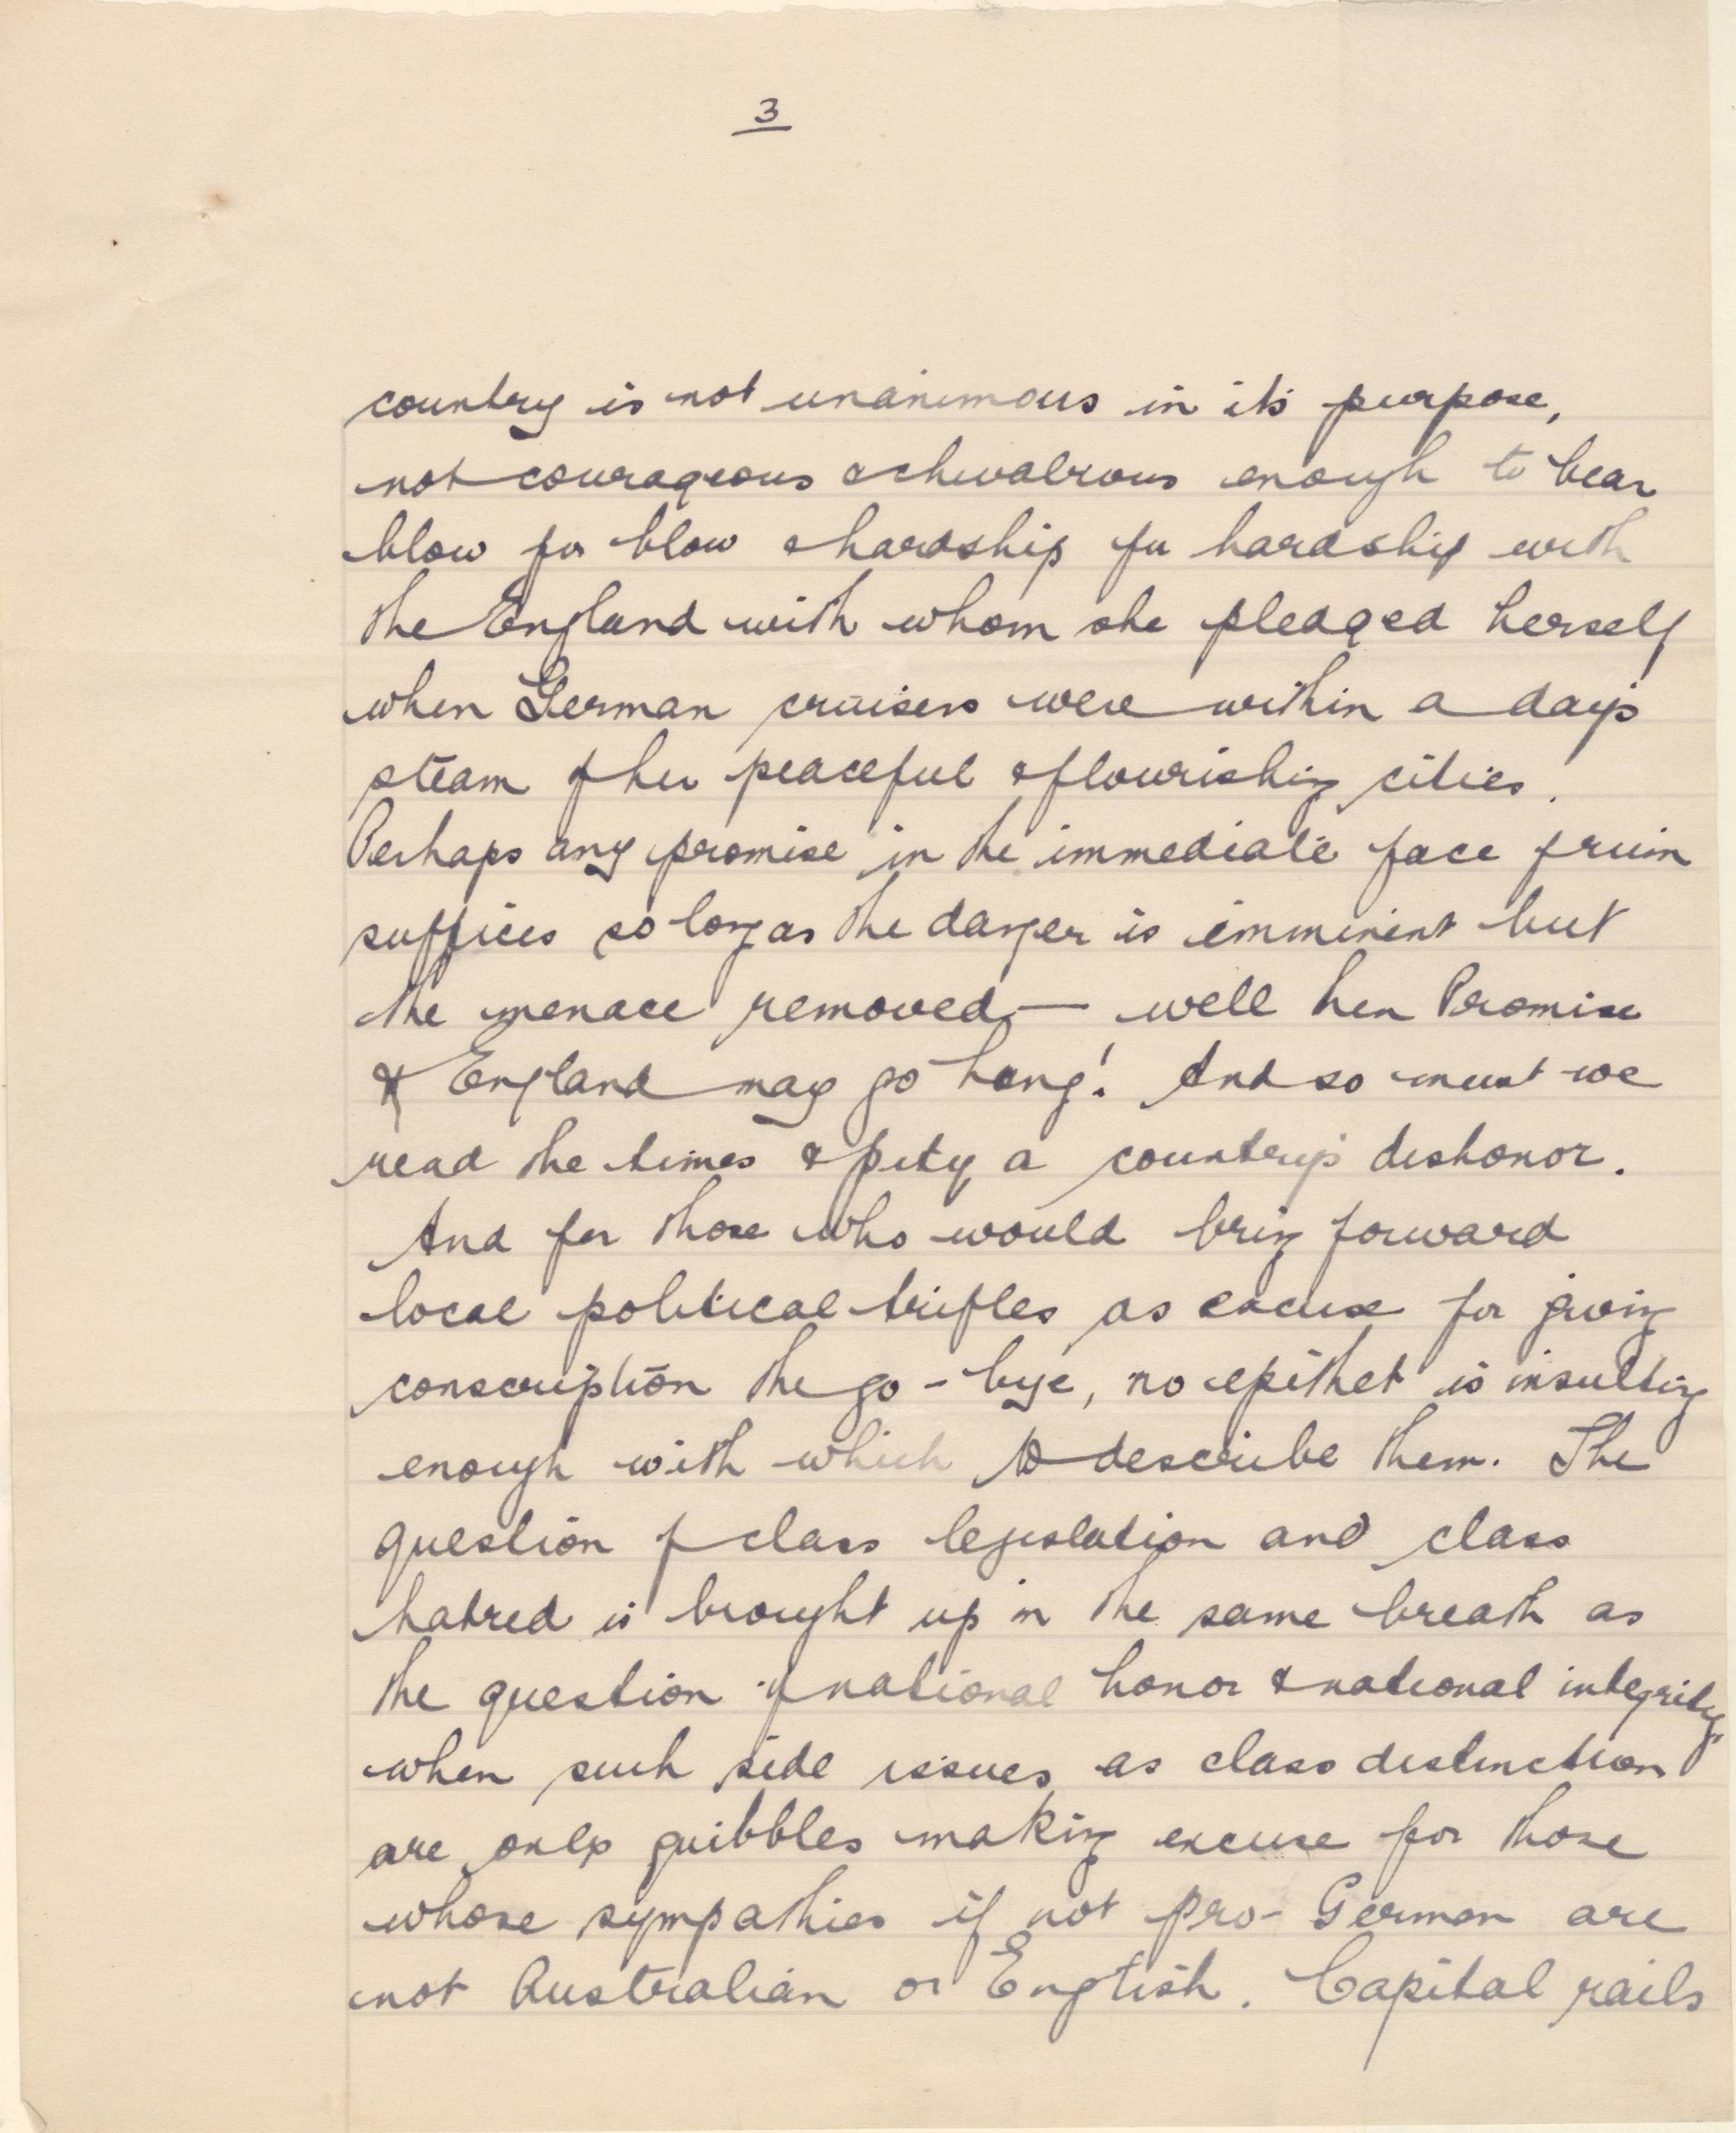 3
country is not unanimous in its purpose,
not courageous & chivalrous enough to bear
blow for blow & hardship for hardship with
the England with whom she pledged herself
when German cruisers were within a day's
steam of her peaceful & flourishing cities.
Perhaps any promise in the immediate face of ruin
suffices so long as the danger is imminent but
the menace removed — well her Promise
& England may go hang! And so must we
read the times & pity a country's dishonor.
And for those who would bring forward
local political trifles as excuse for giving
conscription the go-bye, no epithet is insulting
enough with which to describe them. The
question of class legislation and class
hatred is brought up in the same breath as
the question of national honor & national integrity
when such side issues as class distinction
are only quibbles making excuse for those
whose sympathies if not pro-German are
not Australian or English. Capital rails